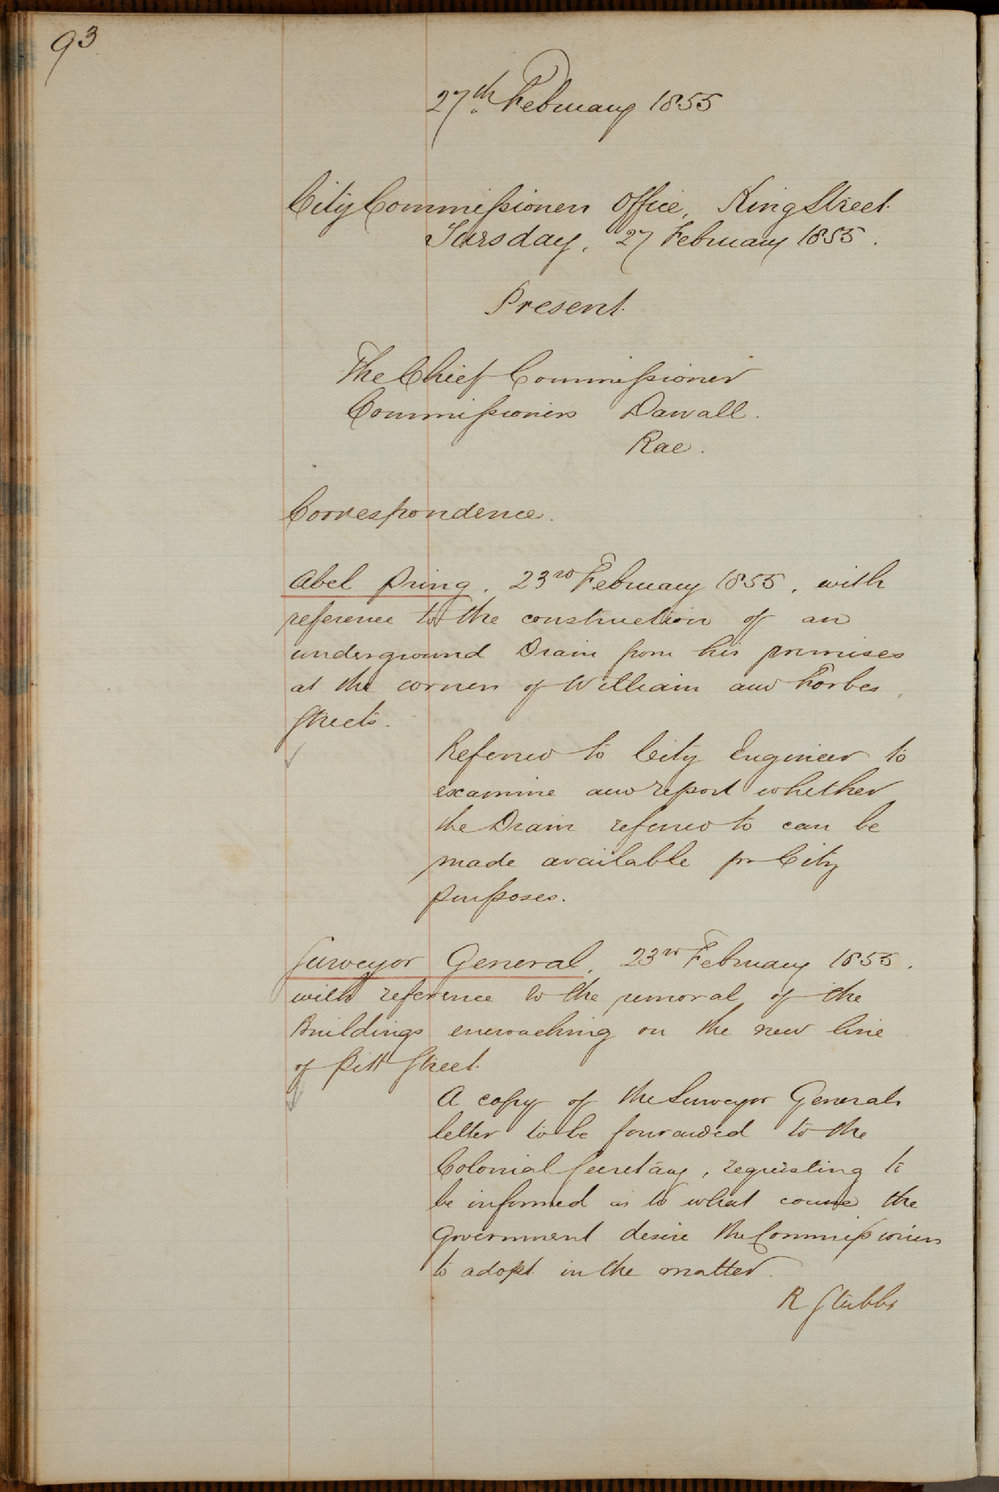 93
27th February 1855
City Commissioners Office, King Street.
Tuesday, 27 February 1855.
Present.
The Chief Commissioner
Commissioners Darvall.
Rae.
Correspondence.
Abel Pring, 23rd February 1855, with
reference to the construction of an
underground Drain from his premises
at the corner of William and Forbes
Streets.
Referred to City Engineer to
examine and report whether
the Drain referred to can be
made available for City
purposes.
Surveyor General, 23rd February 1855.
with reference to the removal of the
Buildings encroaching on the new line
of Pitt Street.
A copy of the Surveyor Generals
letter to be forwarded to the
Colonial Secretary, requesting to
be informed as to what course the
Government desire the Commissioners
to adopt in the matter.
R Stubbs